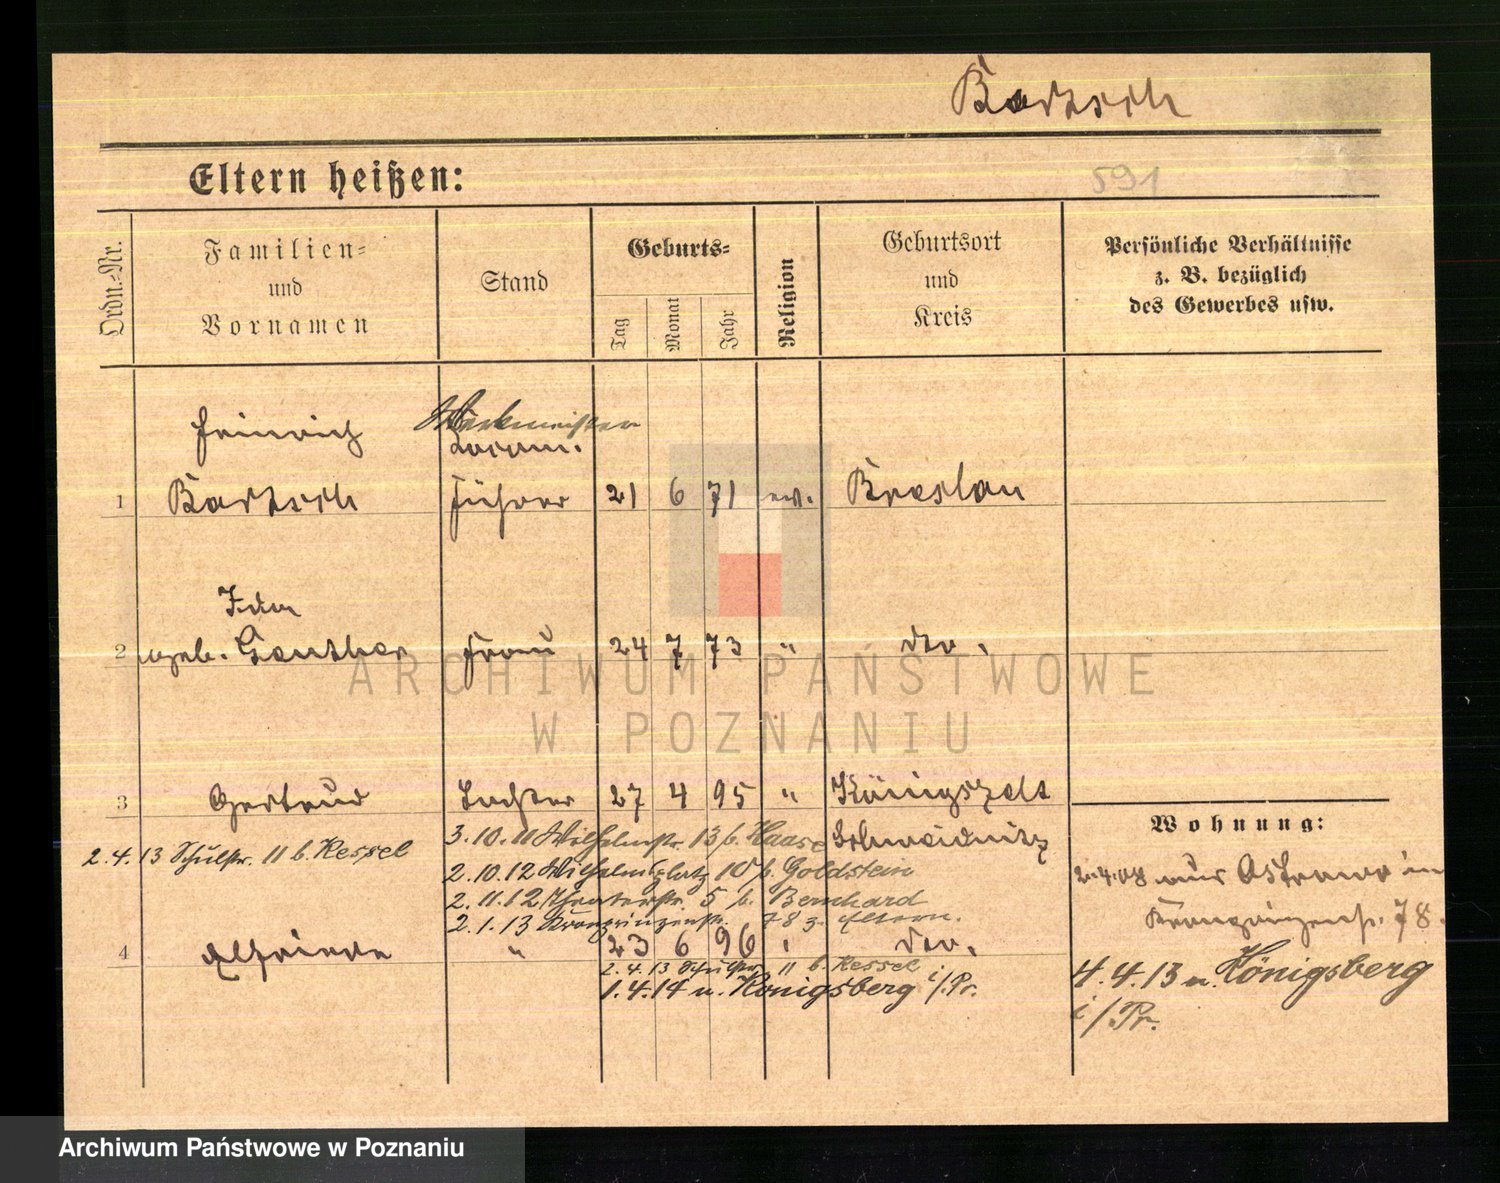 Bartsch
Eltern heißen:
591
Ordn.-Nr.
Familien-
und
Vornamen
Stand
Geburts-
Tag
Monat
Jahr
Religion
Geburtsort
und
Kreis
Persönliche Verhältnisse
z. B. bezüglich
des Gewerbes usw.
Heinrich
Werkmeister
Locom.
1 Bartsch Führer 21 6 71 ev. Breslau
Ida
2 geb. Genther Frau 24 7 73 " dto.
3 Gertrud Tochter 27 4 95 " Königszelt
Wohnung:
3.10.11 Wilhelmstr. 13 b. Haase Schweidnitz
2.4.13 Schulstr. 11 b. Kessel
2.10.12 Wilhelmsplatz 10 b. Goldstein
2.4.08 aus Ostrowo in
2.11.12 Theaterstr. 5 b. Bernhard
2.1.13 Kronprinzenstr. 78 z. Eltern.
Kronprinzenstr. 78.
4 Elfriede " 23 6 96 " dto.
2.4.13 Schulstr. 11 b. Kessel
1.4.14 n. Königsberg i/Pr.
4.4.13 n. Königsberg
i/Pr.
ARCHIWUM PAŃSTWOWE
W POZNANIU
Archiwum Państwowe w Poznaniu